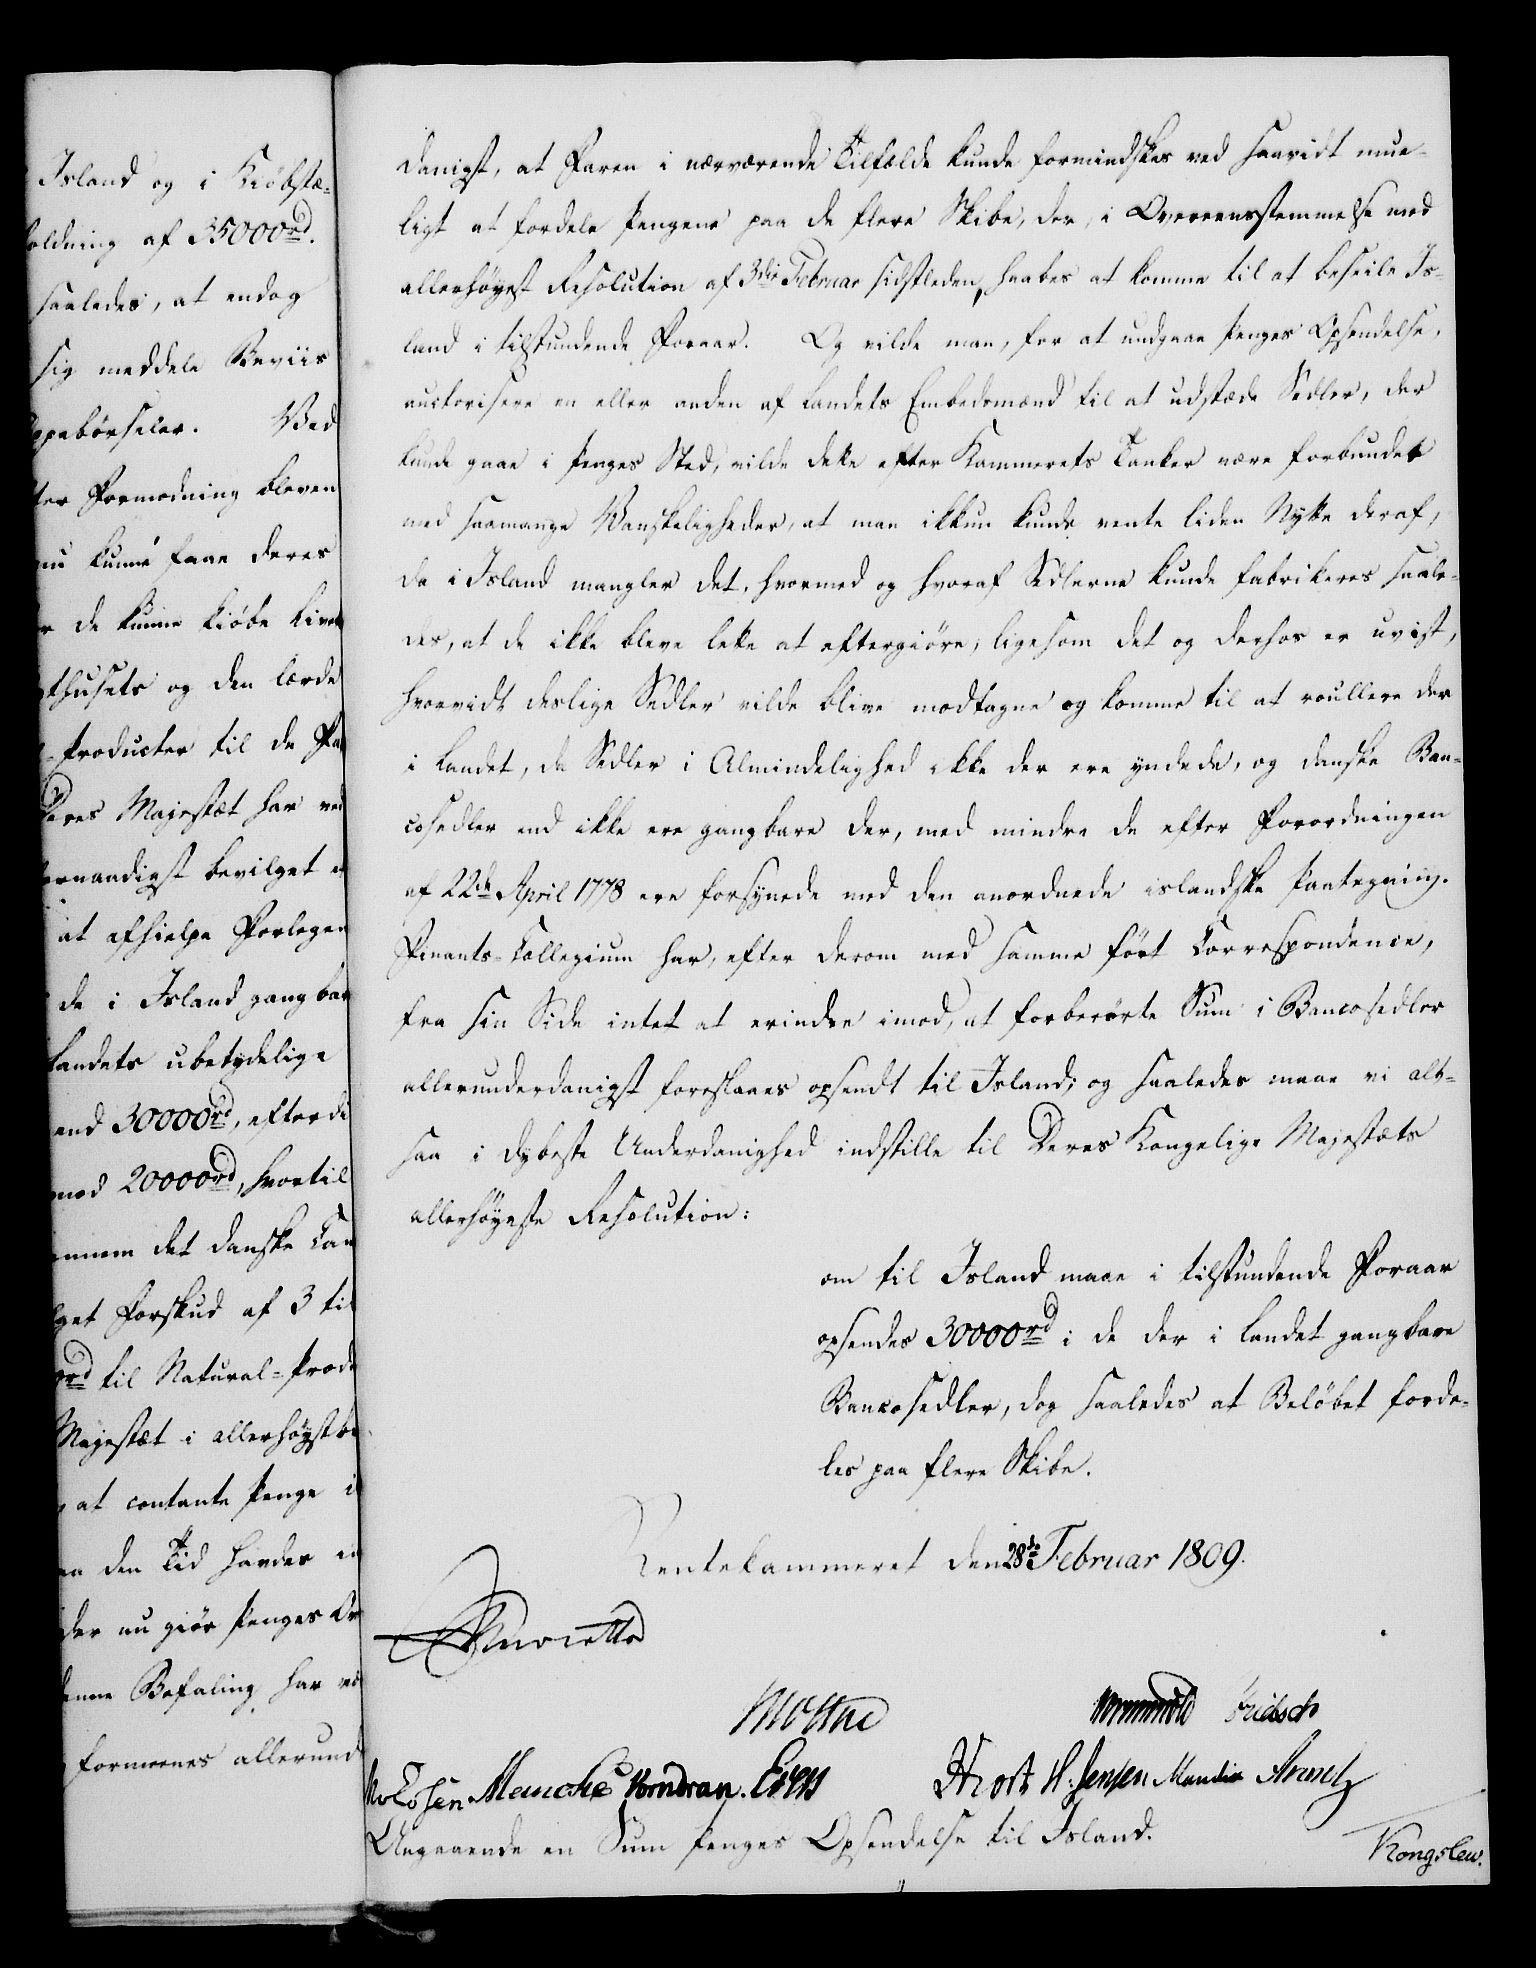 Island og i Kiöbstæ-
holdning af 35000rd.
saaledes, at endog
sig meddele Beviis
Oppebörseler. Ved
ter Formodning bleven
nu kunne faae deres
de kunne kiöbe Livs
gthusets og den lærde
Producter til de Fa
Deres Majestæt har ved
ernaadigst bevilget
at afhielpe Forlegen
de i Island gangbar
Landets ubetydelige
end 30000rd, efterdi
mod 20000rd, hvortil
ennem det danske Can
get Forskud af 3 til
0rd til Natural-Prod
Majestæt i allerhöystbe
at contante Penge i
den Tid havdes
der nu giör Penges
denne Befaling har vi
formeenes allerund
danigst, at Faren i nærværende Tilfælde kunde formindskes ved saavidt mue-
ligt at fordele Pengene paa de flere Skibe, der, i Overeensstemmelse med
allerhöyest Resolution af 3die Februar sidstleden, haabes at komme til at beseile Is-
land i tilstundende Foraar. Og vilde man, for at undgaae Penges Opsendelse,
auctorisere en eller anden af Landets Embedsmænd til at udstæde Sedler, der
kunde gaae i Penges Sted, vilde dette efter Kammerets Tanker være forbundet
med saamange Vanskeligheder, at man ikkun kunde vente liden Nytte deraf,
da i Island mangler det, hvormed og hvoraf Sedlerne kunde fabrikeres saale-
des, at de ikke bleve lette at eftergiöre, ligesom det og derhos er uvist,
hvorvidt deslige Sedler vilde blive modtagne og komme til at roullere der
i Landet, da Sedler i Almindelighed ikke der ere yndede, og danske Ban-
cosedler end ikke ere gangbare der, med mindre de efter Forordningen
af 22de April 1778 ere forsynede med den anordnede islandske Paategning.
Finants-Collegium har, efter derom med samme fört Correspondence,
fra sin Side intet at erindre imod, at forberörte Sum i Bancosedler
allerunderdanigst foreslaaes opsendt til Island; og saaledes maae vi alt-
saa i dybeste Underdanighed indstille til Deres Kongelige Majestæts
allerhöyeste Resolution:
om til Island maae i tilstundende Foraar
opsendes 30000rd i de der i Landet gangbare
Bancosedler, dog saaledes at Belöbet forde-
les paa flere Skibe.
Rentekammeret den 28de Februar 1809.
Moltke
Wormskiold Fridsch
Monrath Korndran. Evers
Hiort H. Jensen Arntz
Angaaende en Sum Penges Opsendelse til Island.
Kongslew.